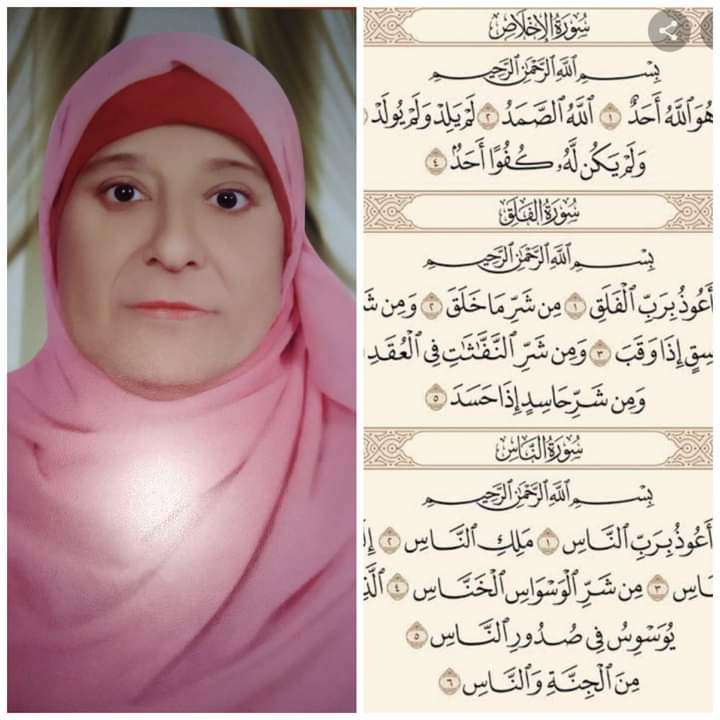 سُورَةُ الإِخْلَاصِ
بِسْمِ ٱللَّهِ ٱلرَّحْمَٰنِ ٱلرَّحِيمِ
هُوَ ٱللَّهُ أَحَدٌ ١ ٱللَّهُ ٱلصَّمَدُ ٢ لَمْ يَلِدْ وَلَمْ يُولَدْ
وَلَمْ يَكُن لَّهُۥ كُفُوًا أَحَدٌۢ ٤
سُورَةُ الفَلَقِ
بِسْمِ ٱللَّهِ ٱلرَّحْمَٰنِ ٱلرَّحِيمِ
أَعُوذُ بِرَبِّ ٱلْفَلَقِ ١ مِن شَرِّ مَا خَلَقَ ٢ وَمِن شَ
سِقٍ إِذَا وَقَبَ ٣ وَمِن شَرِّ ٱلنَّفَّٰثَٰتِ فِي ٱلْعُقَدِ
وَمِن شَرِّ حَاسِدٍ إِذَا حَسَدَ ٥
سُورَةُ النَّاسِ
بِسْمِ ٱللَّهِ ٱلرَّحْمَٰنِ ٱلرَّحِيمِ
أَعُوذُ بِرَبِّ ٱلنَّاسِ ١ مَلِكِ ٱلنَّاسِ ٢ إِلَ
ـاسِ ٣ مِن شَرِّ ٱلْوَسْوَاسِ ٱلْخَنَّاسِ ٤ ٱلَّذِ
يُوَسْوِسُ فِي صُدُورِ ٱلنَّاسِ ٥
مِنَ ٱلْجِنَّةِ وَٱلنَّاسِ ٦